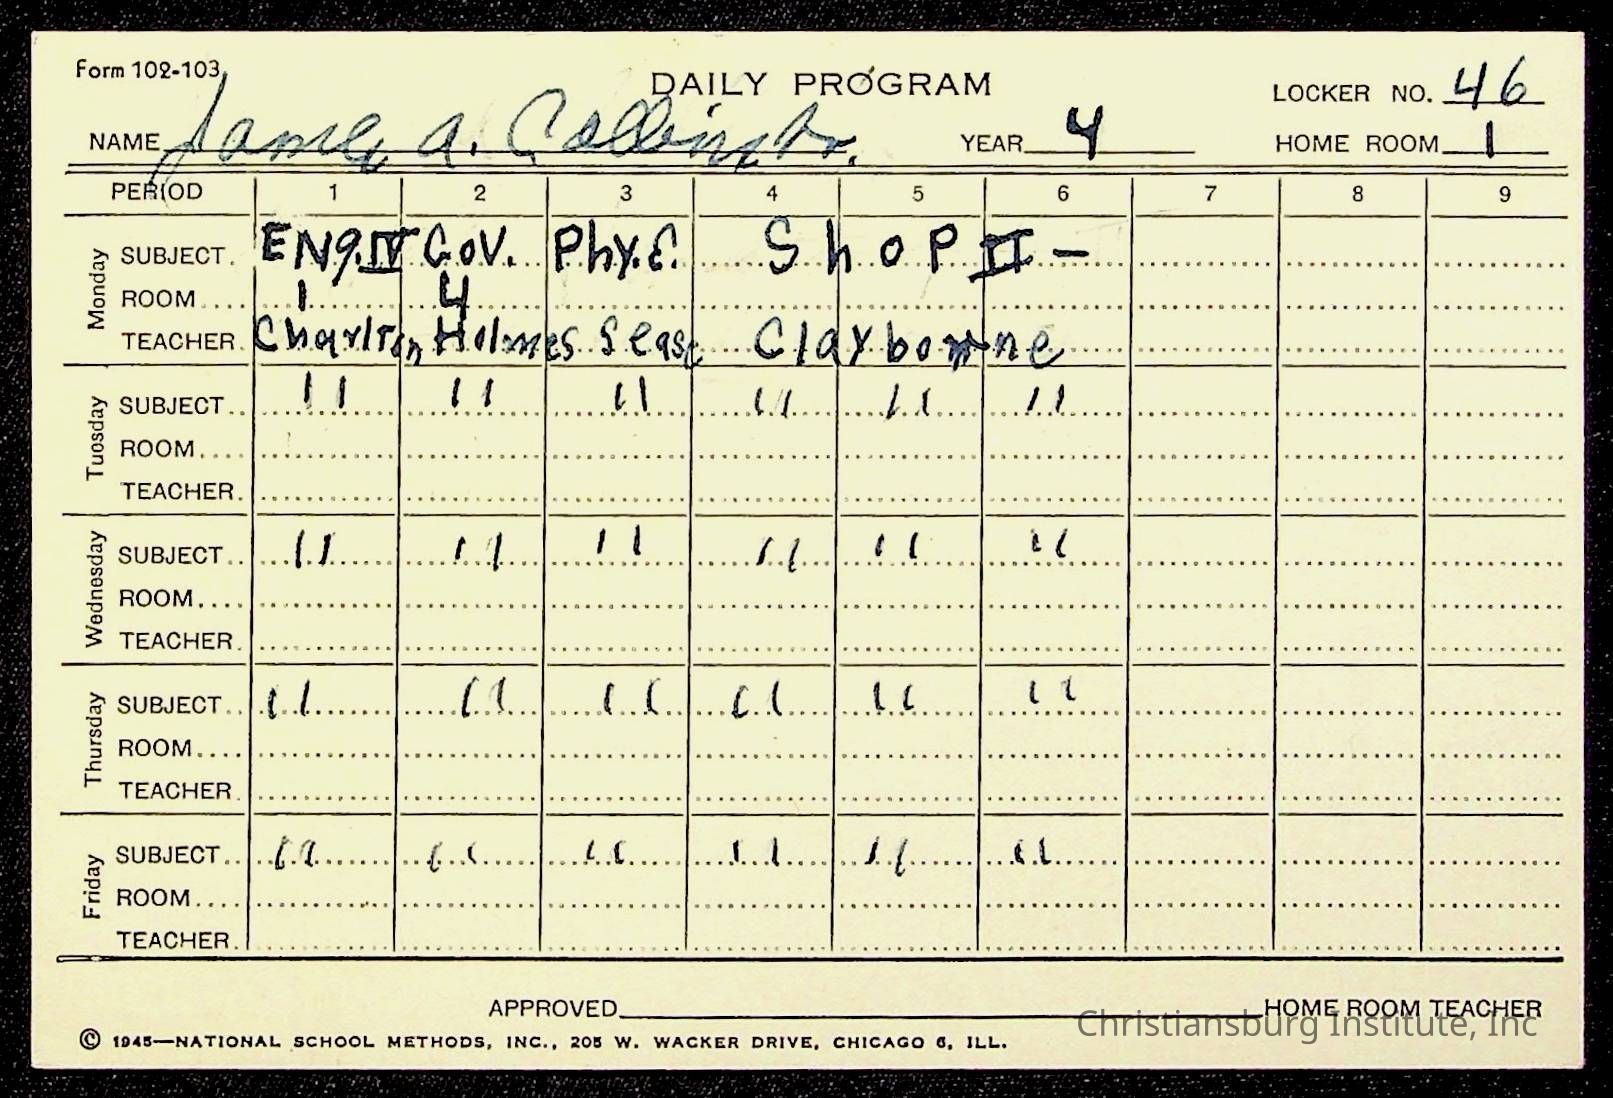 Form 102-103
DAILY PROGRAM
LOCKER NO. 46
NAME James A. Collins Jr. YEAR 4 HOME ROOM 1
PERIOD 1 2 3 4 5 6 7 8 9
Monday
SUBJECT ENg. IV Gov. Phy. E. Shop II -
ROOM 1 4
TEACHER Charlton Holmes Sease Claybourne
Tuosday
SUBJECT 11 11 11 11 11 11
ROOM
TEACHER
Wednosday
SUBJECT 11 11 11 11 11 11
ROOM
TEACHER
Thursday
SUBJECT 11 11 11 11 11 11
ROOM
TEACHER
Friday
SUBJECT 11 11 11 11 11 11
ROOM
TEACHER
APPROVED HOME ROOM TEACHER
© 1945—NATIONAL SCHOOL METHODS, INC., 205 W. WACKER DRIVE, CHICAGO 6, ILL.
Christiansburg Institute, Inc